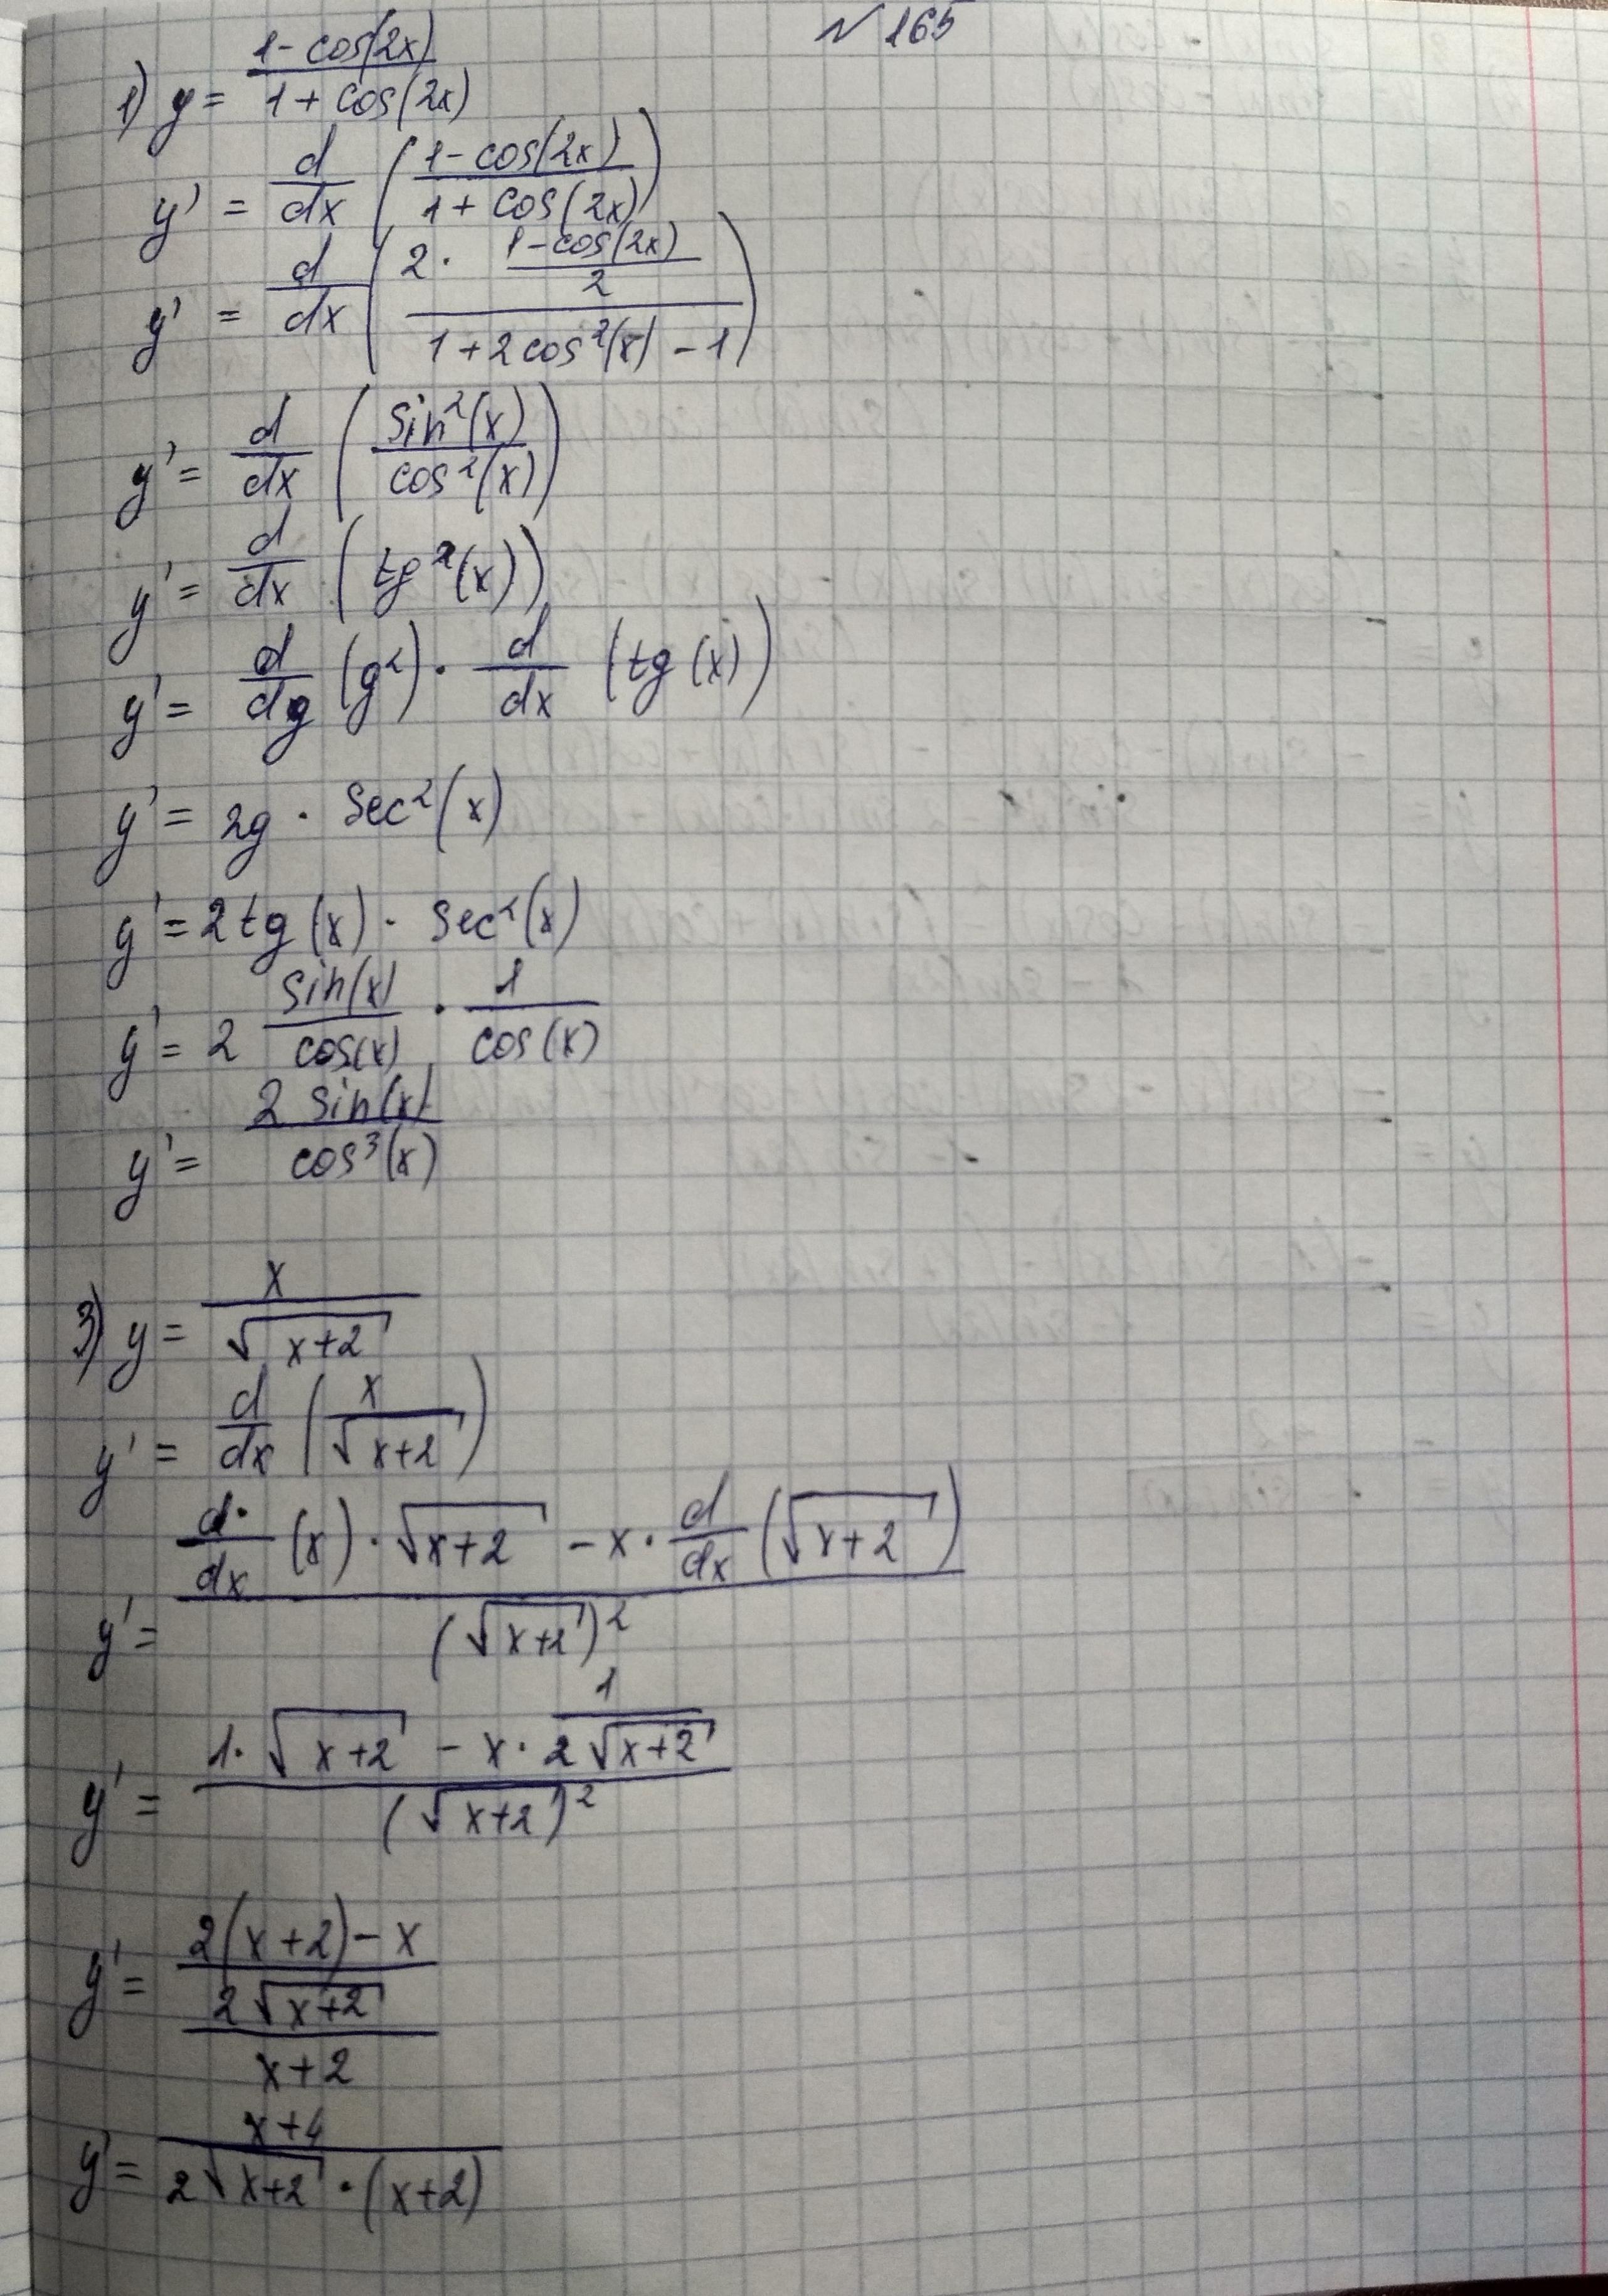 № 165
1) y = \frac{1-cos(2x)}{1+cos(2x)}
y' = \frac{d}{dx} (\frac{1-cos(2x)}{1+cos(2x)})
y' = \frac{d}{dx} (\frac{2 \cdot \frac{1-cos(2x)}{2}}{1+2cos^2(x)-1})
y' = \frac{d}{dx} (\frac{sin^2(x)}{cos^2(x)})
y' = \frac{d}{dx} (tg^2(x))
y' = \frac{d}{dg} (g^2) \cdot \frac{d}{dx} (tg(x))
y' = 2g \cdot sec^2(x)
y' = 2tg(x) \cdot sec^2(x)
y' = 2 \frac{sin(x)}{cos(x)} \cdot \frac{1}{cos(x)}
y' = \frac{2 sin(x)}{cos^3(x)}
3) y = \frac{x}{\sqrt{x+2}}
y' = \frac{d}{dx} (\frac{x}{\sqrt{x+2}})
y' = \frac{\frac{d}{dx}(x) \cdot \sqrt{x+2} - x \cdot \frac{d}{dx}(\sqrt{x+2})}{(\sqrt{x+2})^2}
y' = \frac{1 \cdot \sqrt{x+2} - x \cdot \frac{1}{2\sqrt{x+2}}}{(\sqrt{x+2})^2}
y' = \frac{\frac{2(x+2)-x}{2\sqrt{x+2}}}{x+2}
y' = \frac{x+4}{2\sqrt{x+2} \cdot (x+2)}